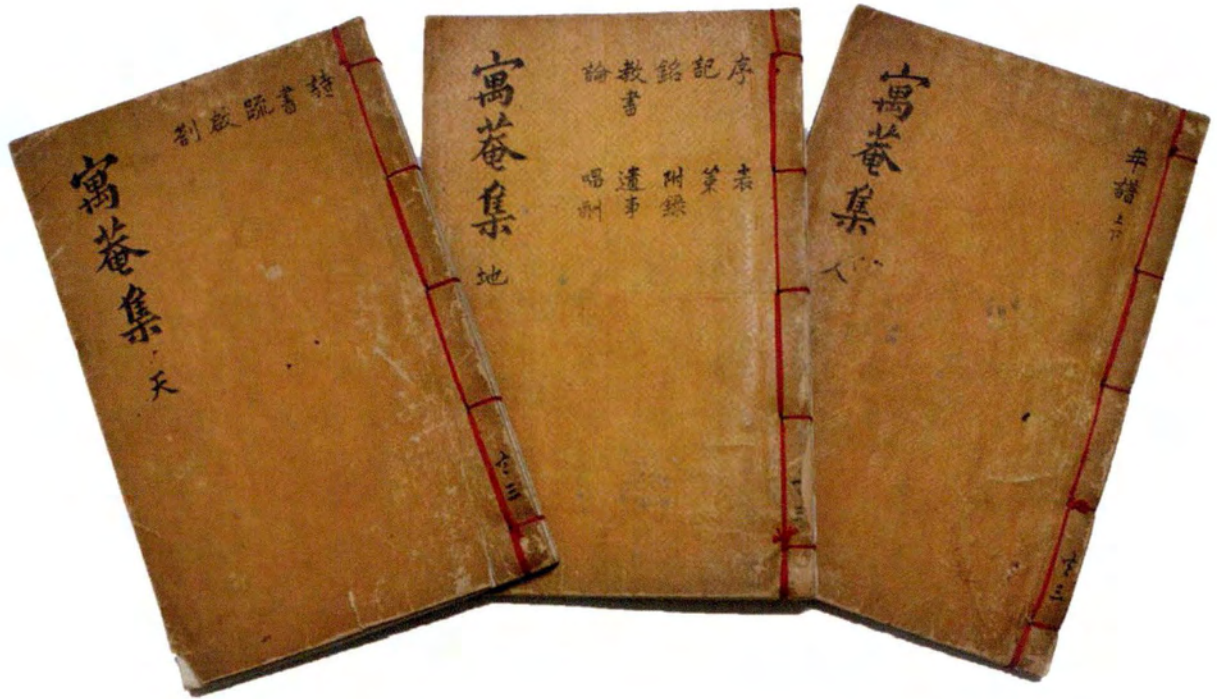 寓菴集 天
詩 書 疏 啟 劄
共三
寓菴集 地
序 記 銘 教書 論
表 策 附錄 遺事 唱
共三
寓菴集 人
年譜 上下
共三